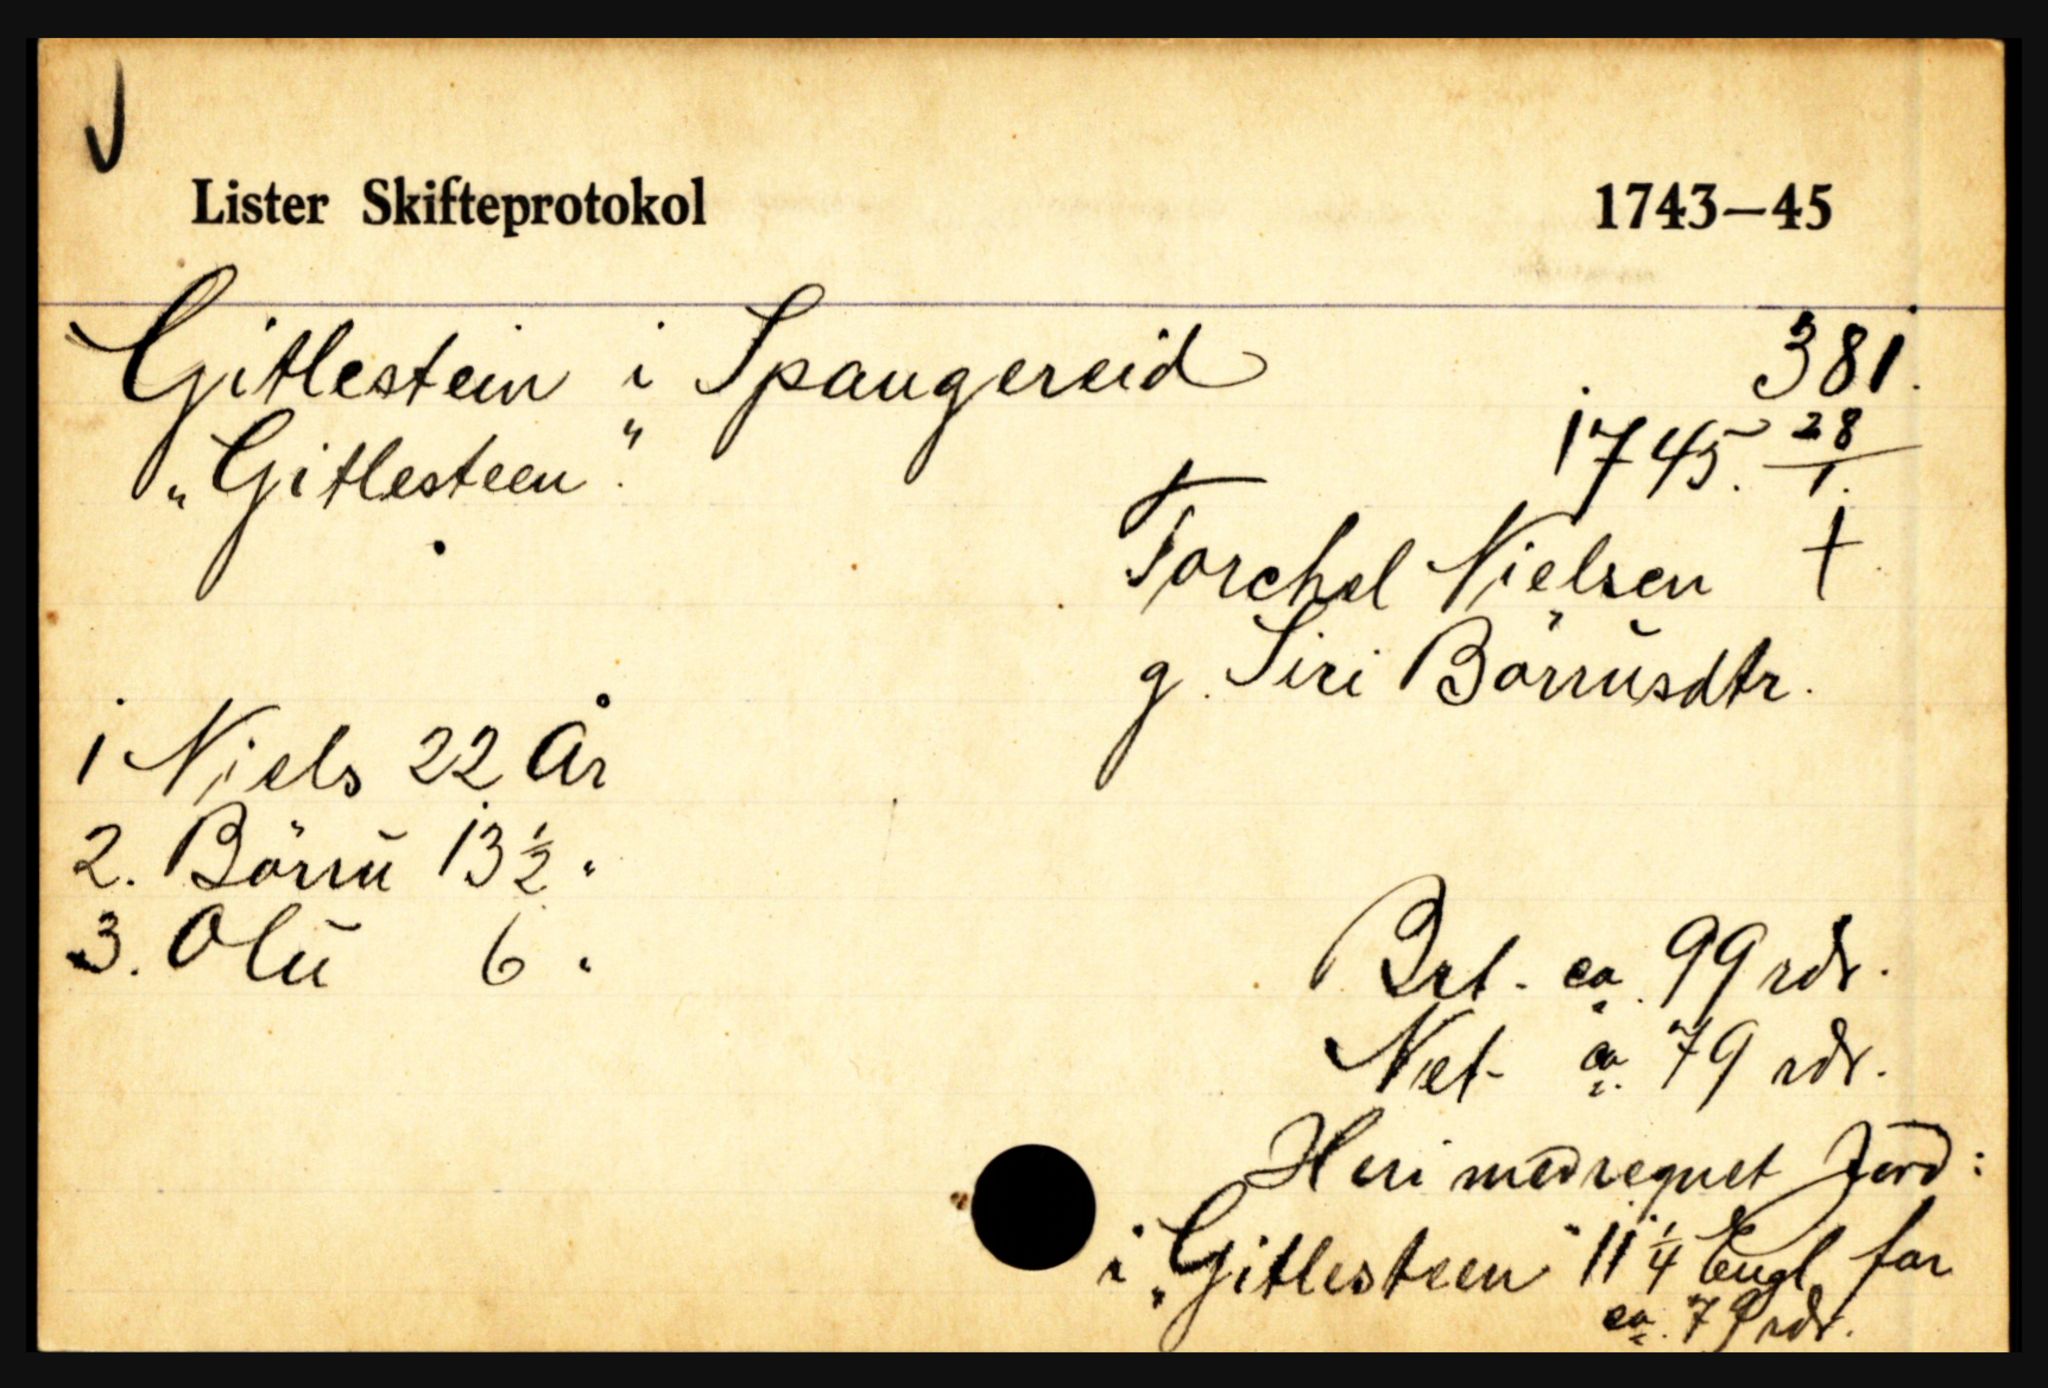 Lister Skifteprotokol 1743–45
Gitlestein i Spangereid 381.
"Gitlesteen".
1745. 28/1.
Torchel Nielsen †
g. Siri Börrusdtr.
1 Niels 22 År
2. Börru 13 ½ "
3. Olu 6 "
Brt. ca. 99 rdr.
Net ca. 79 rdr.
Heri medregnet Jord:
i "Gitlesteen" 11 ¼ Engl for
ca. 79 rdr.